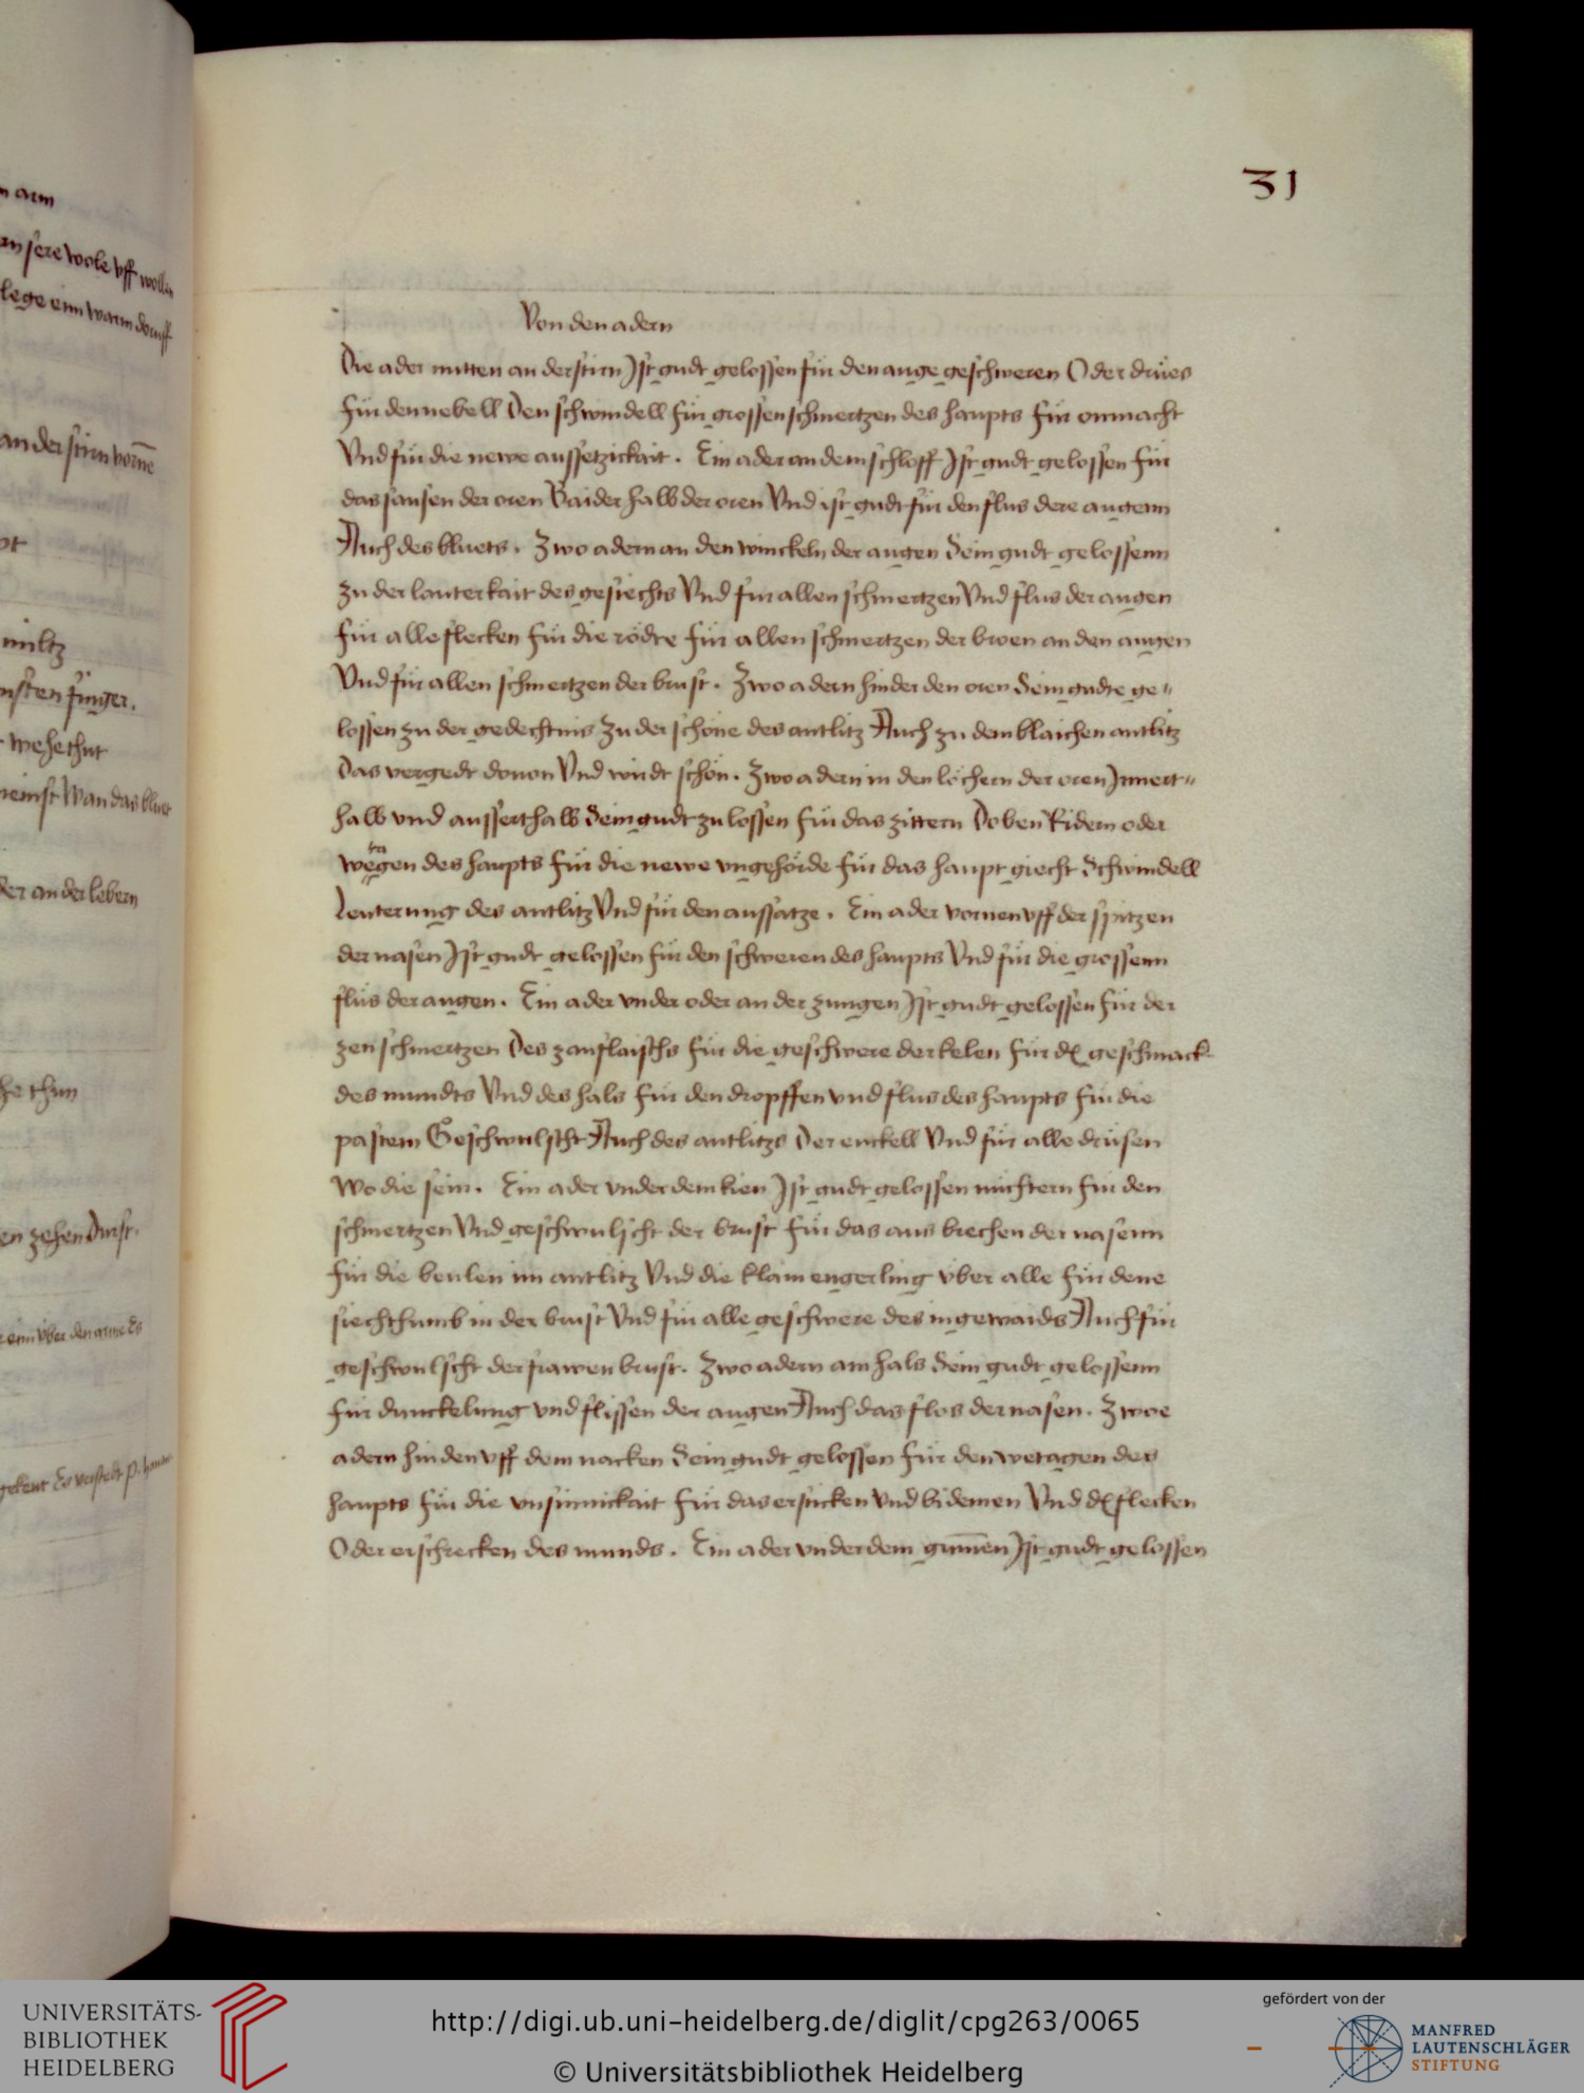 31
Von den adern
Die ader mitten an der stirn Ist gudt gelossen für den auge geschweren Oder drües
für den nebell Den schwindell für grossen schmertzen des haupts für onmacht
Vnd für die newe aussetzickait. Ein ader an dem schloff Ist gudt gelossen für
das sausen der oren Baider halb der oren Vnd ist gudt für den flus dere augenn
Auch des bluets. Zwo adern an den winckeln der augen Sein gudt gelossenn
zu der lauterkait des gesiechts Vnd für allen schmertzen Vnd flus der augen
für alle flecken für die rödte für allen schmertzen der broen an den augen
Vnd für allen schmertzen der brust. Zwo adern hinder den oren Sein gudte ge"
lossen zu der gedechtnis Zu der schöne des antlitz Auch zu dem blaichen antlitz
Das vergedt douon Vnd wirdt schön. Zwo adern in den löchern der oren Innert"
halb vnd ausserthalb Sein gudt zu lossen für das zittern Doben Ridern oder
wegen des haupts für die newe vngehörde für das haupt giecht Schwindell
Leuterung des antlitz Vnd für den aussatze. Ein ader vornen vff der spitzen
der nasen Ist gudt gelossen für den schweren des haupts Vnd für die grossenn
flüs der augen. Ein ader vnder oder an der zungen Ist gudt gelossen für der
zen schmertzen Des zanflaischs für die geschwere der kelen für dz geschmack
des mundts Vnd des hals für den dropffen vnd flus des haupts für die
pastem Geschwulscht Auch des antlitzs Der enckell Vnd für alle drüsen
Wo die sein. Ein ader vnder dem kien Ist gudt gelossen nüchtern für den
schmertzen Vnd geschwulscht der brust für das aus brechen der nasenn
für die beulen im antlitz Vnd die klain engerling vber alle für dene
siechthumb in der brust Vnd für alle geschwere des ingewaids Auch für
geschwulscht der frawen brust. Zwo adern am hals Sein gudt gelossenn
für dunckelung vnd flissen der augen Auch das flos der nasen. Zwoe
adern hinden vff dem nacken Sein gudt gelossen für den wetagen des
haupts für die vnsinnickait für das ersticken Vnd bidemen Vnd dz flecken
Oder erschrecken des munds. Ein ader vnder dem gumen Ist gudt gelossen
UNIVERSITÄTS-
BIBLIOTHEK
HEIDELBERG
http://digi.ub.uni-heidelberg.de/diglit/cpg263/0065
© Universitätsbibliothek Heidelberg
gefördert von der
MANFRED
LAUTENSCHLÄGER
STIFTUNG